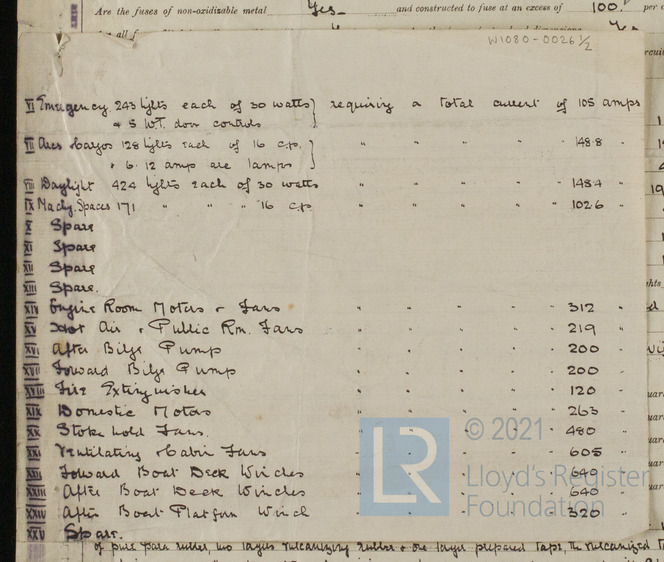 Are the fuses of non-oxidizable metal Yes and constructed to fuse at an excess of 100. per c
W1080-0026 1/2
VI Emergency 243 lights each of 30 watts } requiring a total current of 105 amps
& 5 W.T. door controls
VII Arcs Cargos 128 lights each of 16 c.p. } " " " " " 148.8 "
& 6. 12 amp arc lamps
VIII Daylight 424 lights each of 30 watts " " " " " 148.4 "
IX Machy. Spaces 171 " " " 16 c.p. " " " " " 102.6 "
X Spare
XI Spare
XII Spare
XIII Spare.
XIV Engine Room Motors & Fans " " " " " 312 "
XV Hot Air & Public Rm. Fans " " " " " 219 "
XVI After Bilge Pump " " " " " 200 "
XVII Forward Bilge Pump " " " " " 200 "
XVIII Fire Extinguisher " " " " " 120 "
XIX Domestic Motors " " " " " 263 "
XX Stokehold Fans. " " " " " 480 "
XXI Ventilating & Cabin Fans " " " " " 605 "
XXII Forward Boat Deck Winches " " " " " 640 "
XXIII After Boat Deck Winches " " " " " 640 "
XXIV After Boat Platform Winch " " " " " 320 "
XXV Spare.
of pure para rubber, two layers vulcanizing rubber & one layer prepared tape, the vulcanized
LR © 2021
Lloyd's Register
Foundation